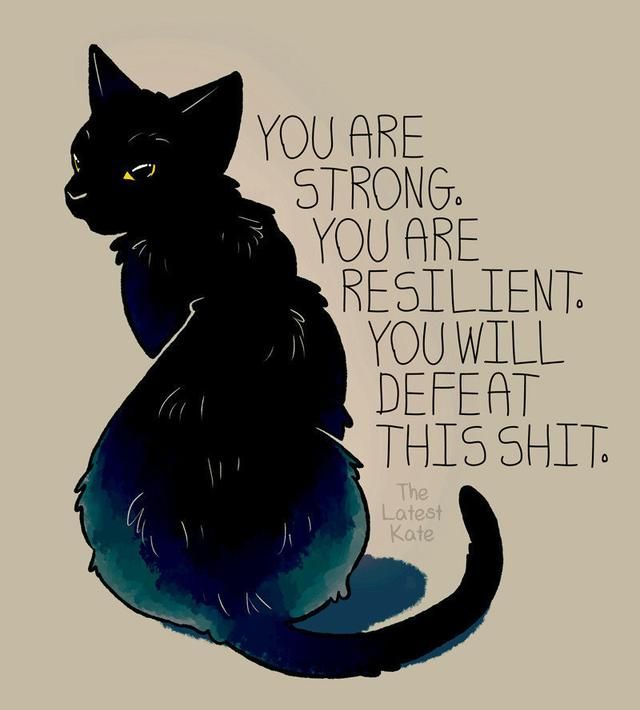 YOU ARE
STRONG.
YOU ARE
RESILIENT.
YOU WILL
DEFEAT
THIS SHIT.
The
Latest
Kate